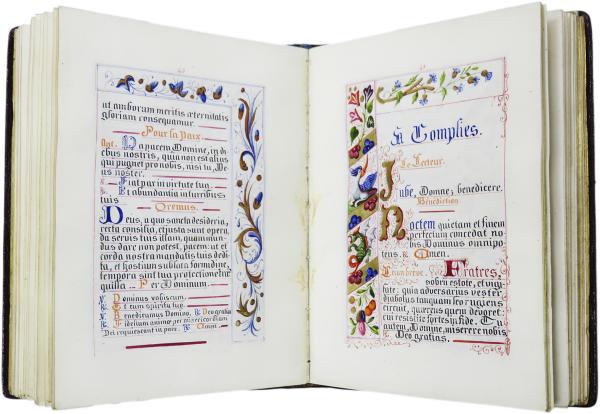 ut amborum meritis æternitatis
gloriam consequamur.
Pour la Paix.
Ant. Da pacem Domine, in di-
ebus nostris, quia non est alius
qui pugnet pro nobis, nisi tu, De-
us noster.
℣. Fiat pax in virtute tua.
℟. Et abundantia in turribus
tuis
Oremus.
Deus, a quo sancta desideria,
recta consilia, et justa sunt opera,
da servis tuis illam, quam mun-
dus dare non potest, pacem: ut et
corda nostra mandatis tuis dedi-
ta, et hostium sublata formidine,
tempora sint tua protectione tran-
quilla. Per Dominum.
℣. Dominus vobiscum.
℟. Et cum spiritu tuo.
℣. Benedicamus Domino. ℟. Deo gratias
℣. Fidelium animæ per misericordiam
Dei requiescant in pace. ℟. Amen.
À Complies.
Le Lecteur.
Jube, Domne, benedicere.
Bénédiction
Noctem quietam et finem
perfectum concedat no-
bis Dominus omnipo-
tens. ℟. Amen.
Leçon brève. Fratres,
sobrii estote, et vigi-
late: quia adversarius vester
diabolus tanquam leo rugiens
circuit, quærens quem devoret:
cui resistite fortes in fide. Tu
autem, Domine, miserere nobis
Deo gratias.